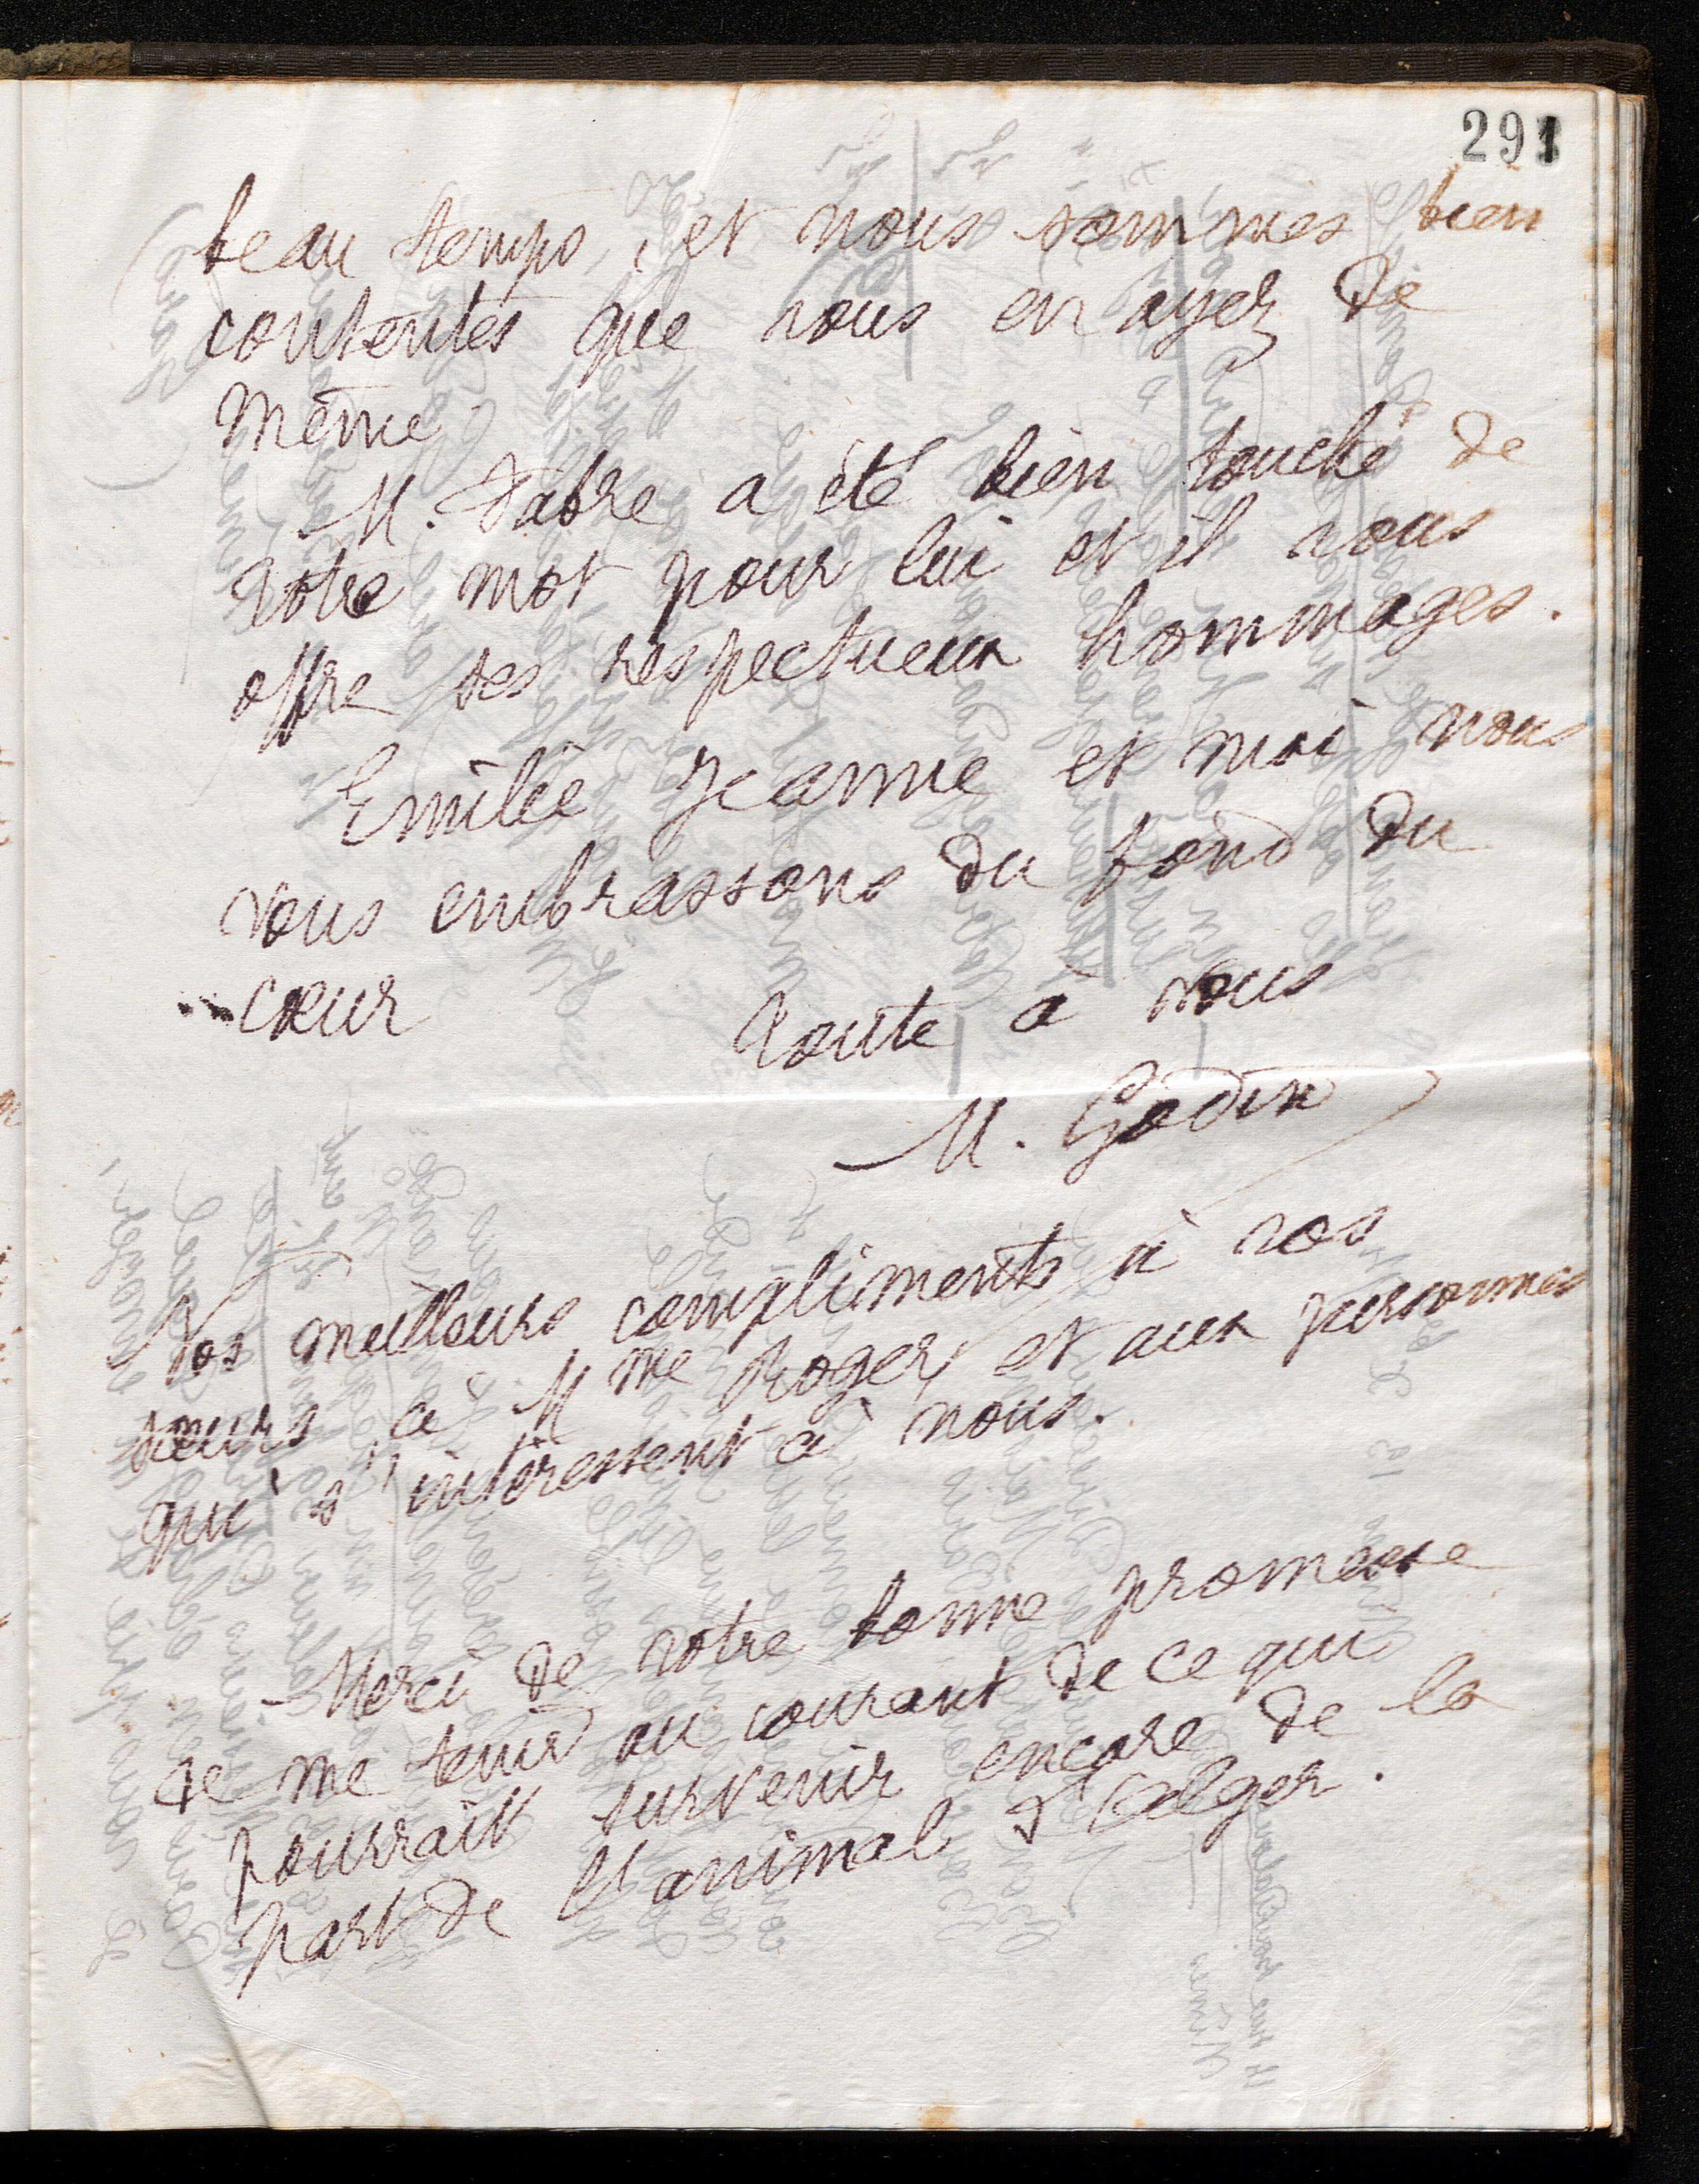 291
beau temps, et nous sommes bien
contentes que vous en ayez de
même.
M. Fabre a été bien touché de
votre mot pour lui et il vous
offre ses respectueux hommages.
Emilie Jeanne et moi nous
vous embrassons du fond du
cœur
toute à vous
M. Godin
Nos meilleurs compliments à vos
sœurs, à Mme Roger et aux personnes
qui s'intéressent à nous.
Merci de votre bonne promesse
de me tenir au courant de ce qui
pourrait survenir encore de la
part de l'animal d'Alger.